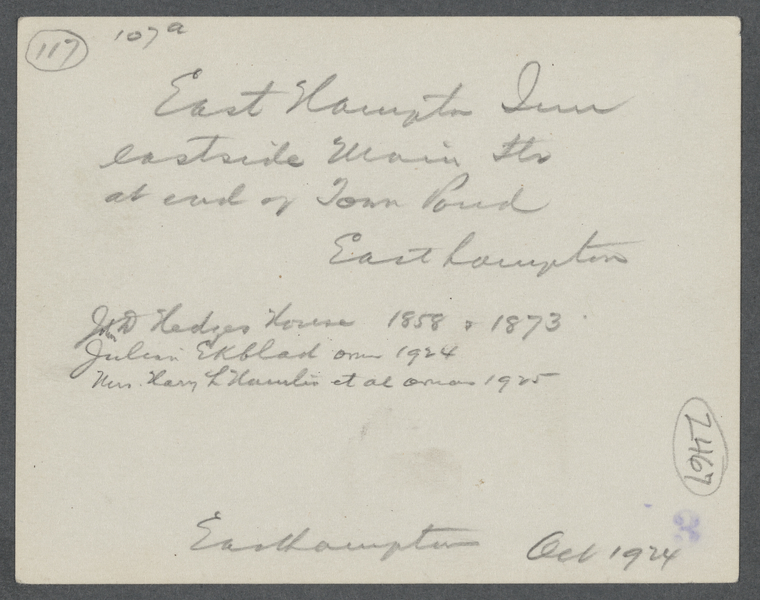 117
107a
East Hampton Inn
eastside Main St
at end of Town Pond
Easthampton
Jno D Hedges House 1858 & 1873
Julian Ekblad own 1924
Mrs. Harry L Hamlin et al owners 1925
7467
Easthampton Oct 1924